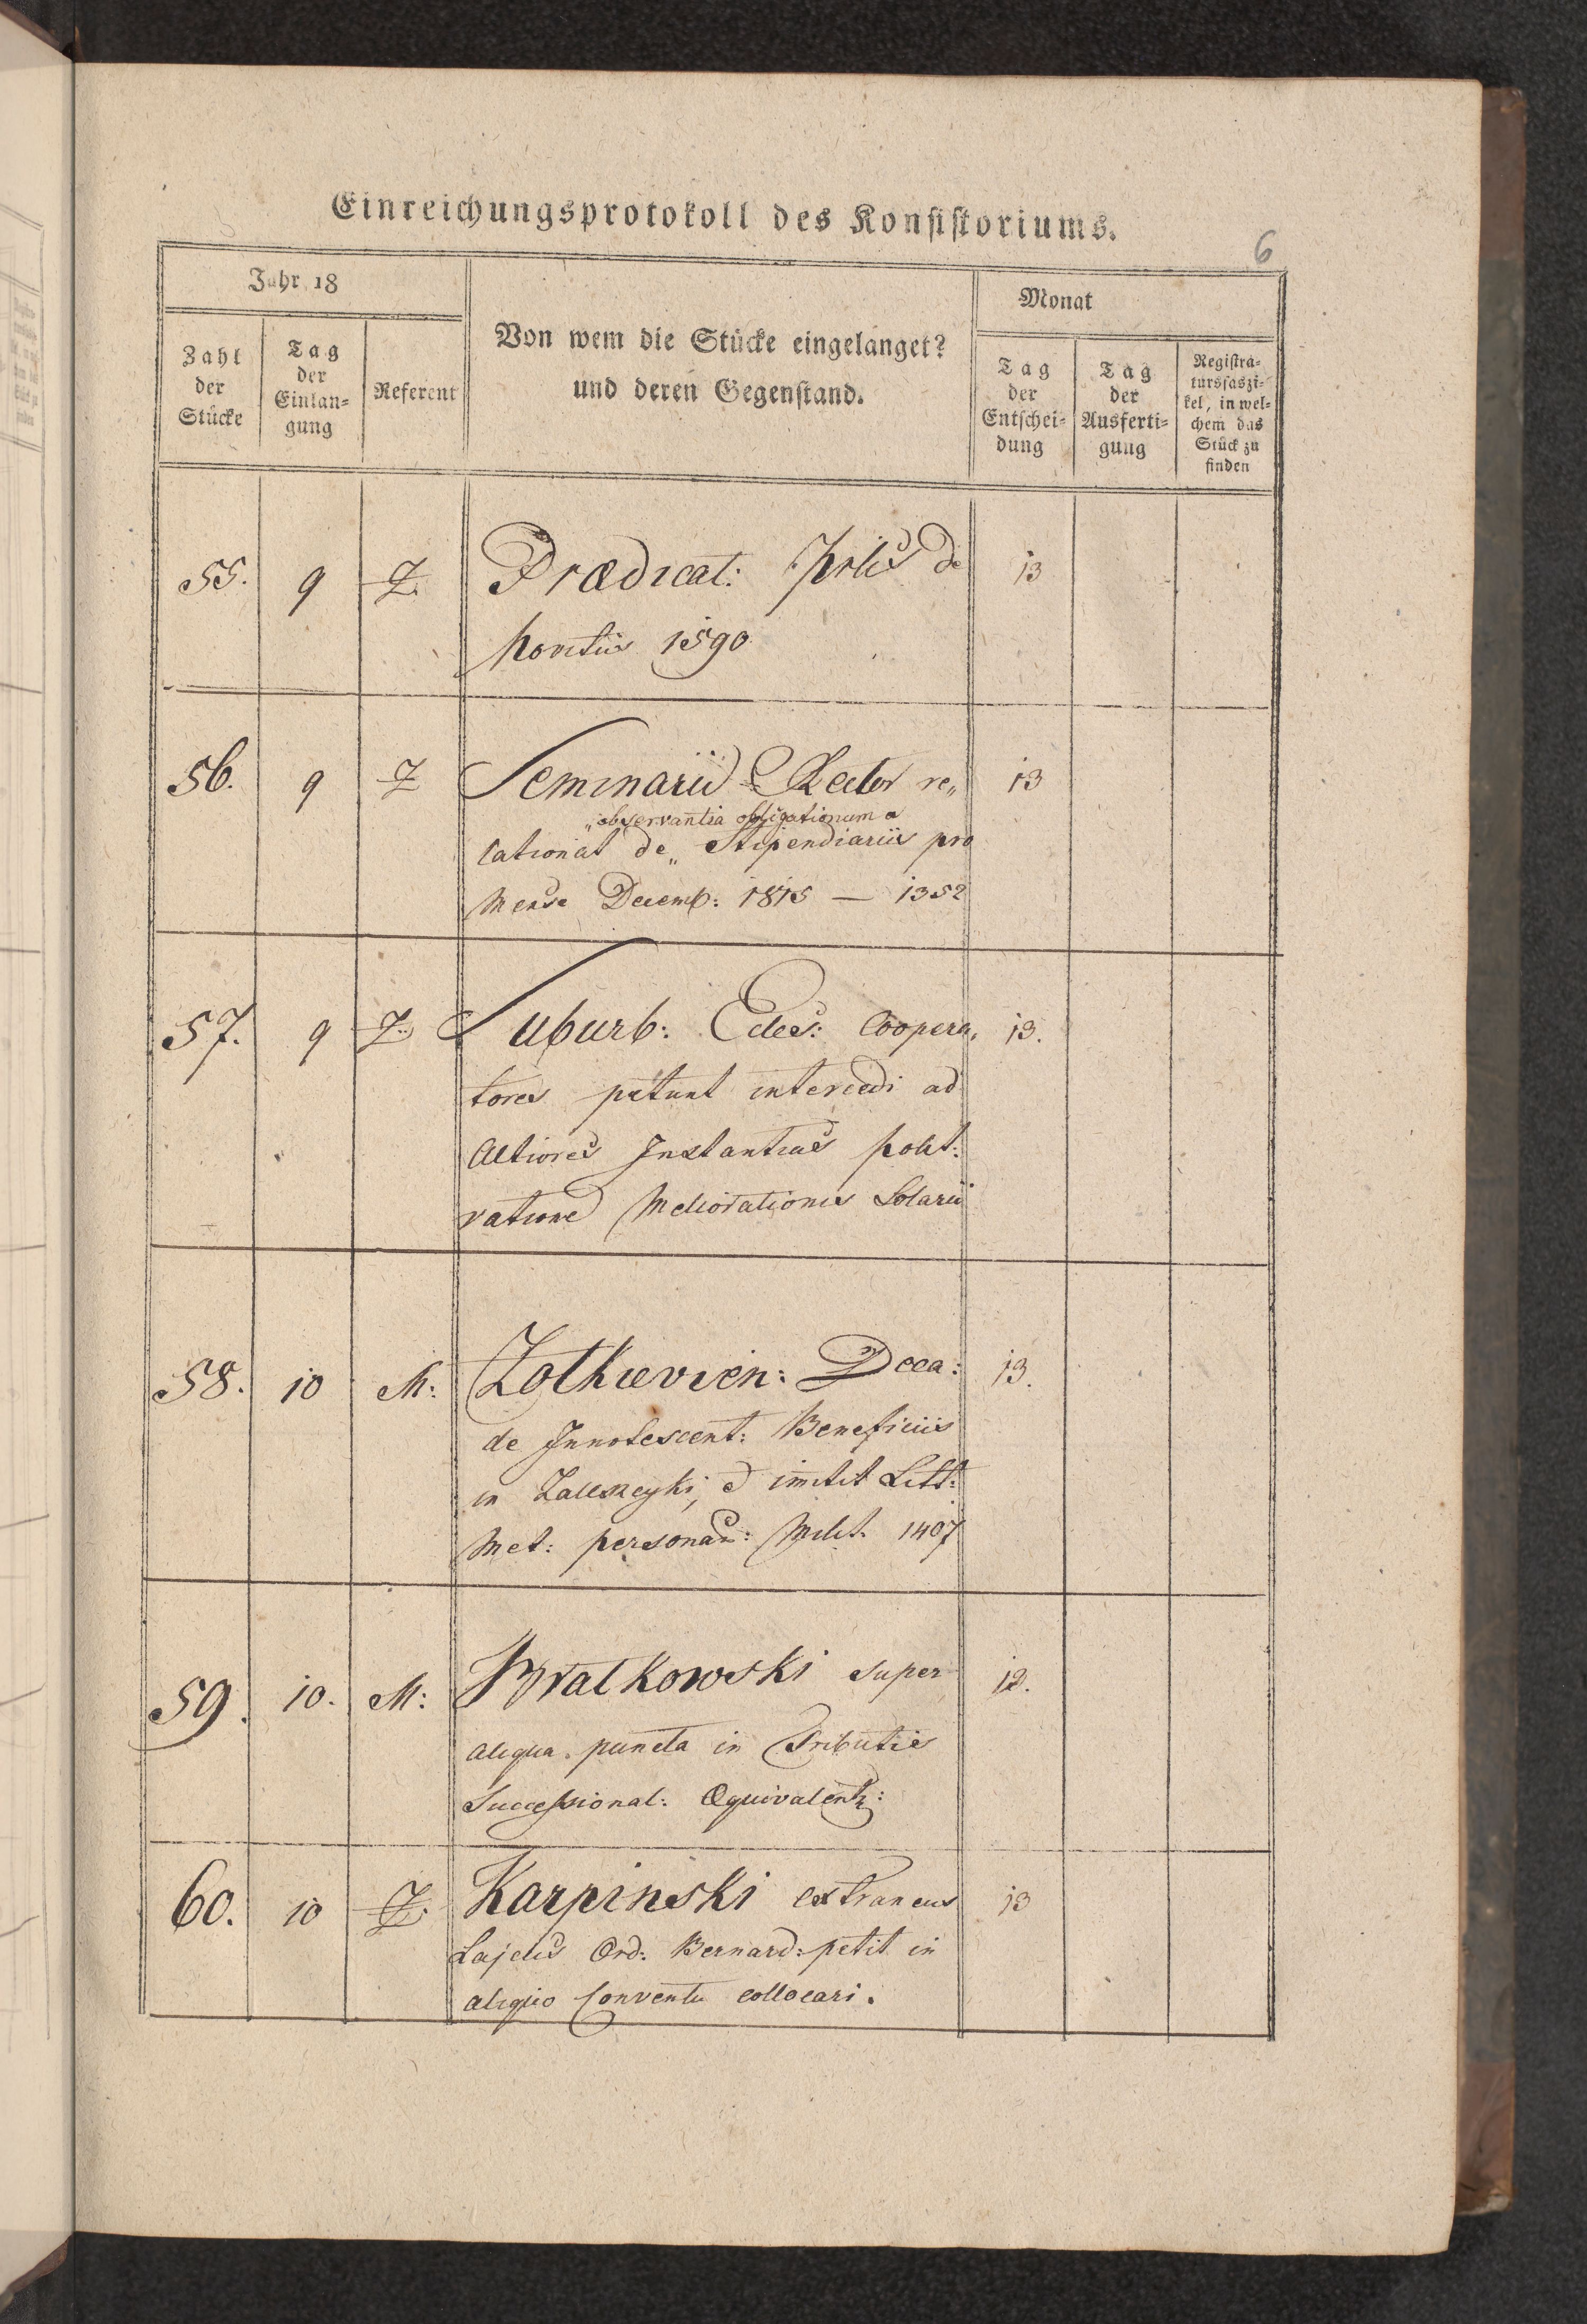 Einreichungsprotokoll des Konsistoriums.
6
Jahr 18
Monat
Zahl der Stücke
Tag der Einlangung
Referent
Von wem die Stücke eingelanget?
und deren Gegenstand.
Tag der Entscheidung
Tag der Ausfertigung
Registratursfaszikel, in welchem das Stück zu finden
55. 9 Z. Prædicat: de 13
1590
56. 9 Z Seminarii Rector re„ 13
„observantia obligationum a
lationat de „ Stipendiariis pro
Mense Decemb: 1815 — 1352
57. 9 Z. Suburb: Eccles: Coopera, 13.
tores petunt intercedi ad
Altiores Instantias polit:
ratione Meliorationis Solarii
58. 10 M: Zolkievien: Deca: 13.
de Innotescent: Beneficiis
in Zaleszczyki, et
Met: personar: Milit. 1407
59. 10. M: Bratkowski super 12.
aliqua puncta in Tributis
Successional: Æquivalent:
60. 10 Z. Karpinski extraneus 13
Lajcus Ord: Bernard: petit in
aliquo Conventu collocari.